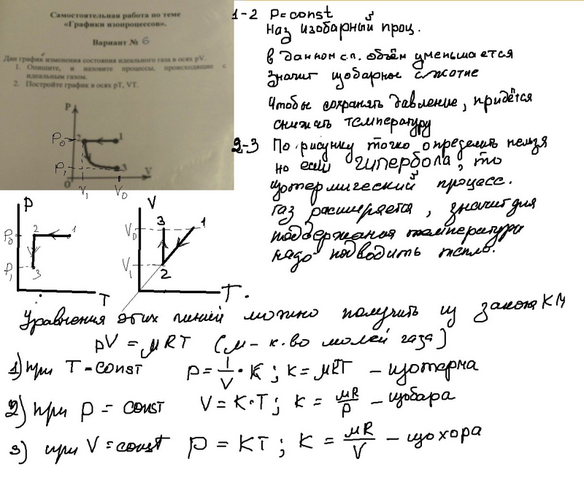 Самостоятельная работа по теме
«Графики изопроцессов».
Вариант № 6
Дан график изменения состояния идеального газа в осях pV.
1. Опишите, и назовите процессы, происходящие с
идеальным газом.
2. Постройте график в осях pT, VT.
P
P₀ 2 1
P₁ 3
0 V₁ V₀ V
1-2 P=const
Наз изобарный проц.
в данном сл. объём уменьшается
значит изобарное сжатие
Чтобы сохранять давление, придётся
снижать температуру
2-3 По рисунку точно определить нельзя
но если гипербола, то
изотермический процесс.
Газ расширяется, значит для
поддержания температуры
надо подводить тепло.
P
P₀ 2 1
P₁ 3
T
V
V₀ 3 1
V₁ 2
T
Уравнения этих линий можно получить из закона КМ
pV = μRT (μ - к.во молей газа)
1) при T - const P = 1/V · K ; K = μRT - изотерма
2) при p = const V = K·T ; K = μR/P - изобара
3) при V = const p = KT ; K = μR/V - изохора